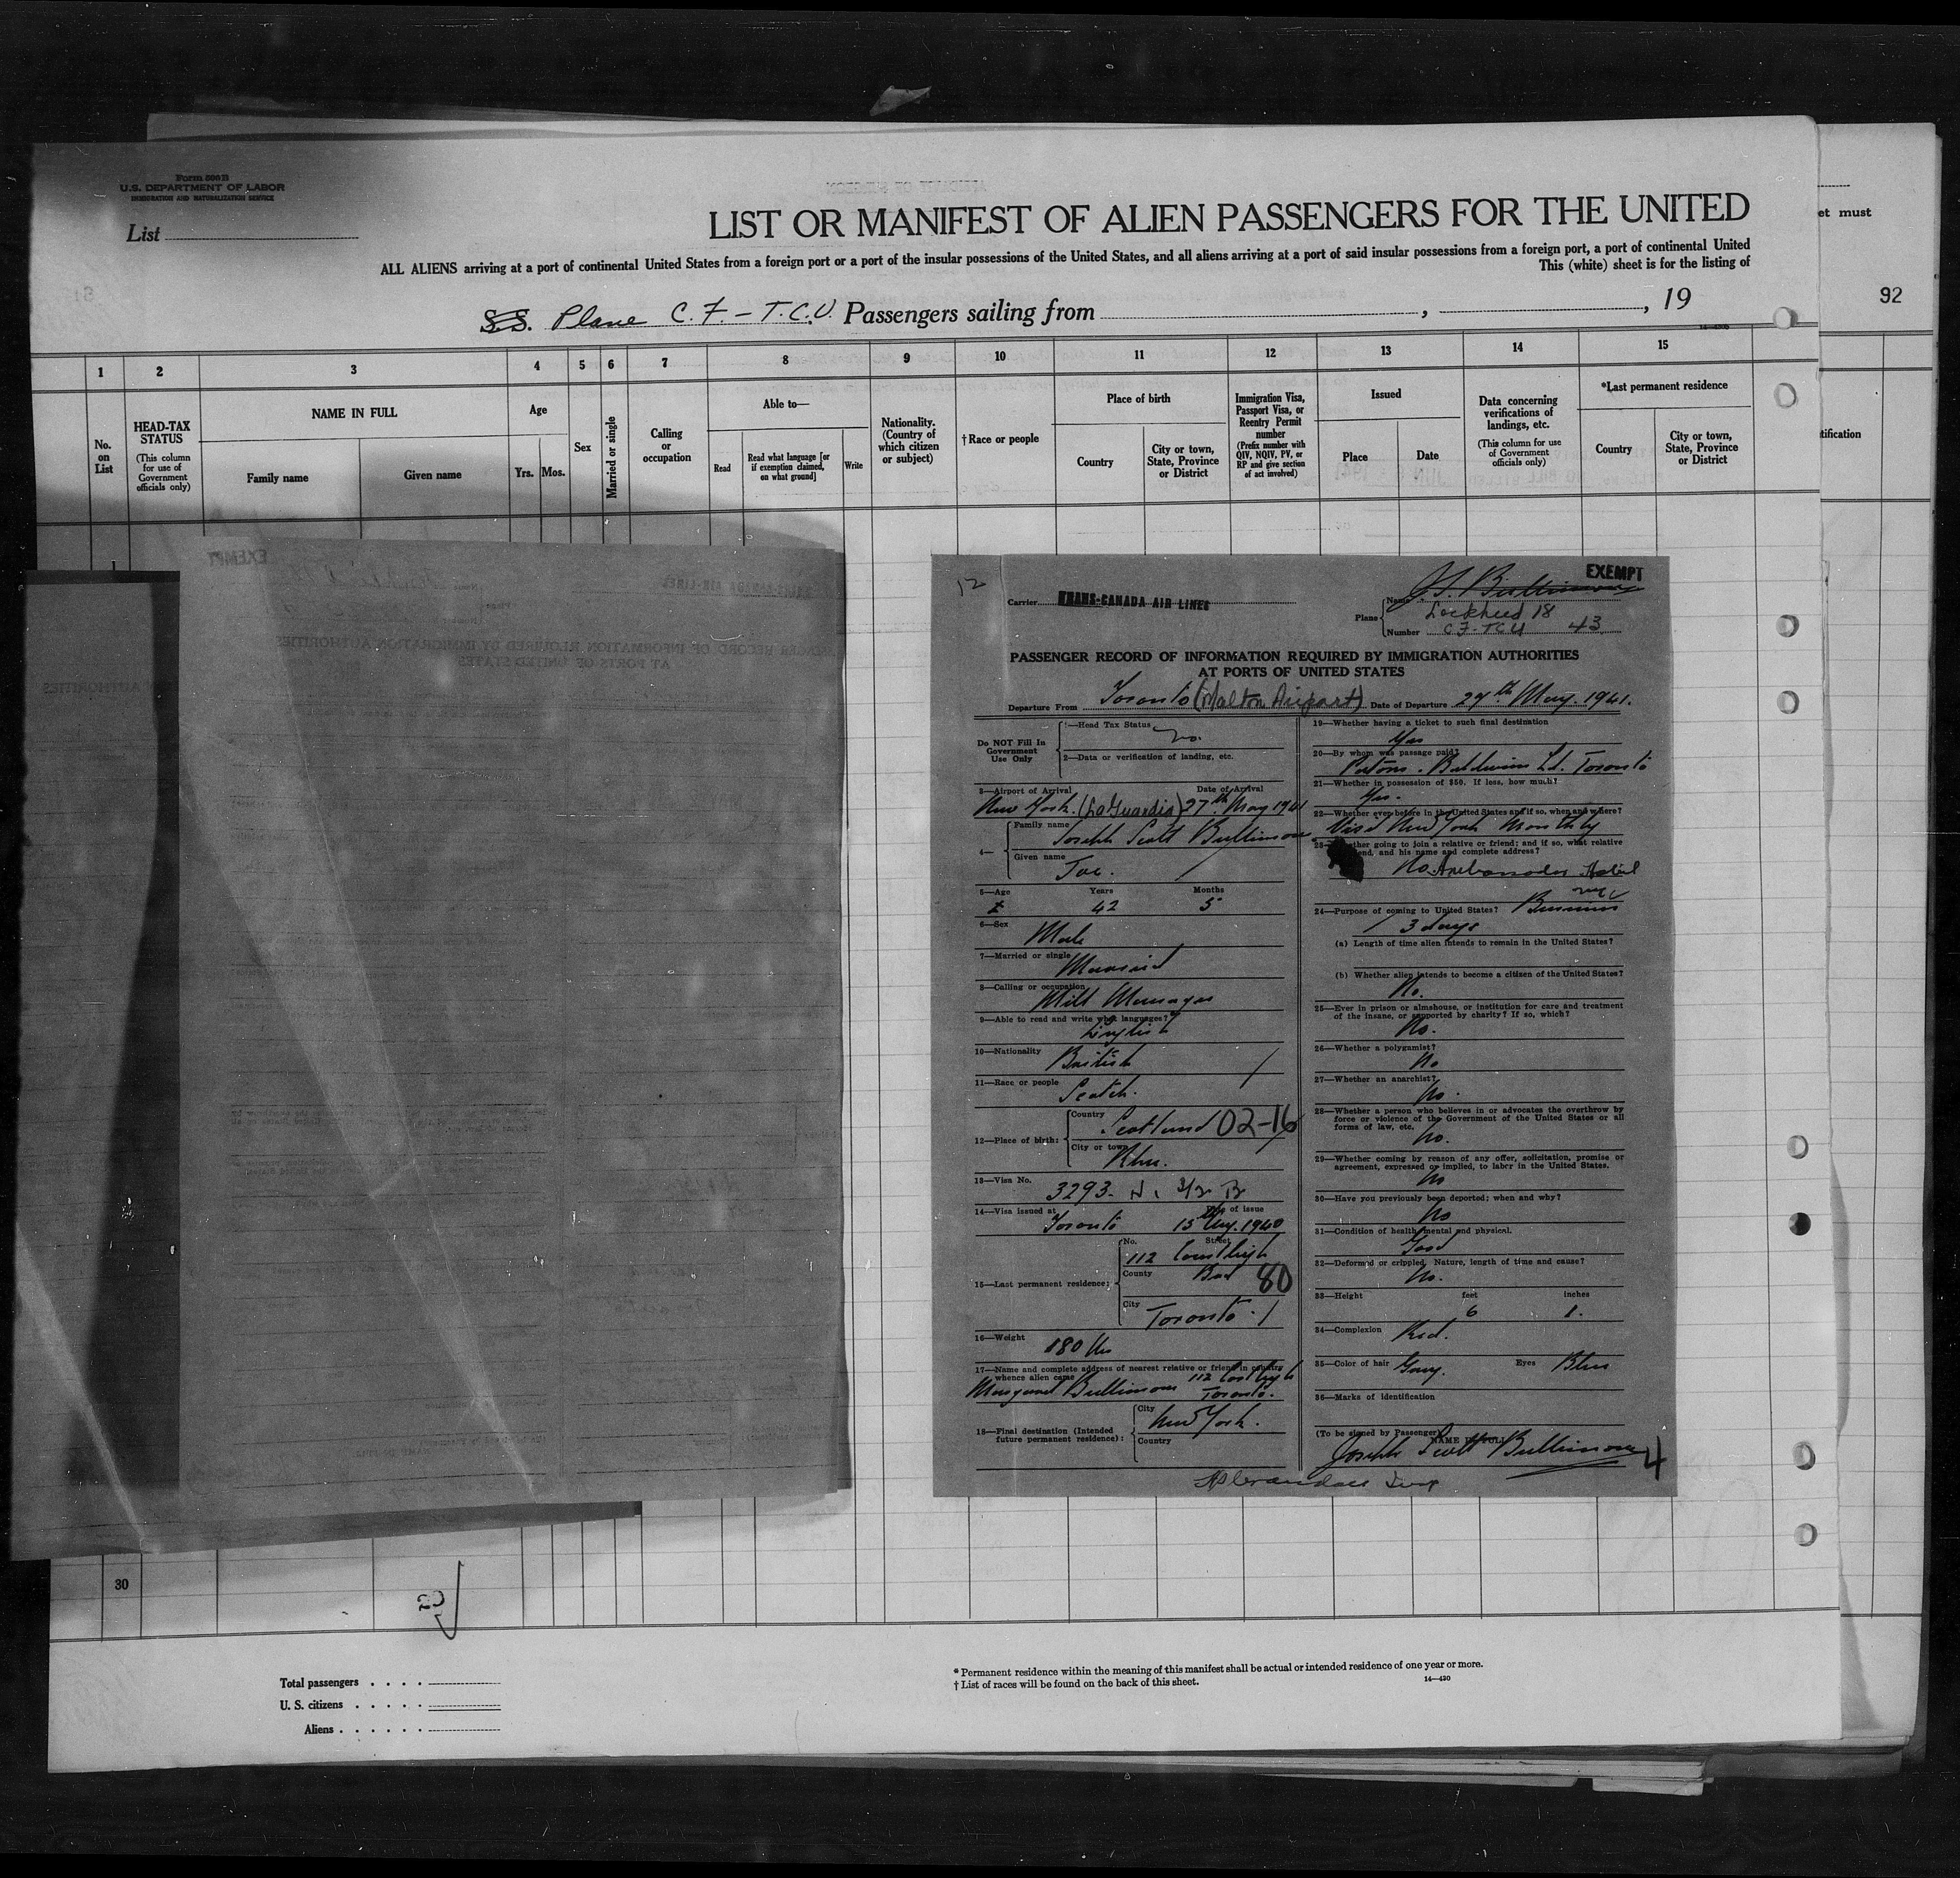 Form 500 B
U.S. DEPARTMENT OF LABOR
IMMIGRATION AND NATURALIZATION SERVICE
List
LIST OR MANIFEST OF ALIEN PASSENGERS FOR THE UNITED
ALL ALIENS arriving at a port of continental United States from a foreign port or a port of the insular possessions of the United States, and all aliens arriving at a port of said insular possessions from a foreign port, a port of continental United
This (white) sheet is for the listing of
et must
92
S.S. Plane C.F.-T.C.U. Passengers sailing from , , 19
1 2 3 4 5 6 7 8 9 10 11 12 13 14 15
No. on List
HEAD-TAX STATUS
(This column for use of Government officials only)
NAME IN FULL
Family name
Given name
Age
Yrs. Mos.
Sex
Married or single
Calling or occupation
Able to—
Read
Read what language [or if exemption claimed, on what ground]
Write
Nationality. (Country of which citizen or subject)
† Race or people
Place of birth
Country
City or town, State, Province or District
Immigration Visa, Passport Visa, or Reentry Permit number
(Prefix number with QIV, NQIV, PV, or RP and give section of act involved)
Issued
Place
Date
Data concerning verifications of landings, etc.
(This column for use of Government officials only)
*Last permanent residence
Country
City or town, State, Province or District
tification
1
12
EXEMPT
Carrier TRANS-CANADA AIR LINES
Plane
Name Lockheed 18
Number CF-TCU 43
PASSENGER RECORD OF INFORMATION REQUIRED BY IMMIGRATION AUTHORITIES
AT PORTS OF UNITED STATES
Departure From Toronto (Malton Airport) Date of Departure 27th May. 1941.
Do NOT Fill In Government Use Only
1—Head Tax Status no.
2—Data or verification of landing, etc.
3—Airport of Arrival Date of Arrival
New York. (La Guardia) 27th May 1941
4—
Family name Joseph Scott Bullimore
Given name Joe.
5—Age Years Months
42 5
6—Sex
Male
7—Married or single
Married
8—Calling or occupation
Mill Manager
9—Able to read and write what languages?
English
10—Nationality
British
11—Race or people
Scotch.
12—Place of birth:
Country Scotland 02-16
City or town Rhu.
13—Visa No.
3293.
14—Visa issued at Date of issue
Toronto 1940
15—Last permanent residence:
No. Street
112
County 80
City Toronto
16—Weight
180 lbs
17—Name and complete address of nearest relative or friend in country whence alien came
Margaret Bullimore 112
Toronto.
18—Final destination (Intended future permanent residence):
City New York.
Country
19—Whether having a ticket to such final destination
Yes
20—By whom was passage paid?
Patons & Baldwins Ld. Toronto
21—Whether in possession of $50. If less, how much?
Yes.
22—Whether ever before in the United States and if so, when and where?
Visit New York Monthly
23—Whether going to join a relative or friend; and if so, what relative or friend, and his name and complete address?
No. Ambassador Hotel
24—Purpose of coming to United States? Business
3 days
(a) Length of time alien intends to remain in the United States?
(b) Whether alien intends to become a citizen of the United States?
No.
25—Ever in prison or almshouse, or institution for care and treatment of the insane, or supported by charity? If so, which?
No.
26—Whether a polygamist?
No
27—Whether an anarchist?
No.
28—Whether a person who believes in or advocates the overthrow by force or violence of the Government of the United States or all forms of law, etc.
No.
29—Whether coming by reason of any offer, solicitation, promise or agreement, expressed or implied, to labor in the United States.
No
30—Have you previously been deported; when and why?
No
31—Condition of health, mental and physical.
Good
32—Deformed or crippled. Nature, length of time and cause?
No.
33—Height feet inches
6 1.
34—Complexion Red.
35—Color of hair Gray. Eyes Blue
36—Marks of identification
(To be signed by Passenger)
NAME IN FULL
Joseph Scott Bullimore
4
30
Total passengers
U. S. citizens
Aliens
* Permanent residence within the meaning of this manifest shall be actual or intended residence of one year or more.
† List of races will be found on the back of this sheet.
14—430